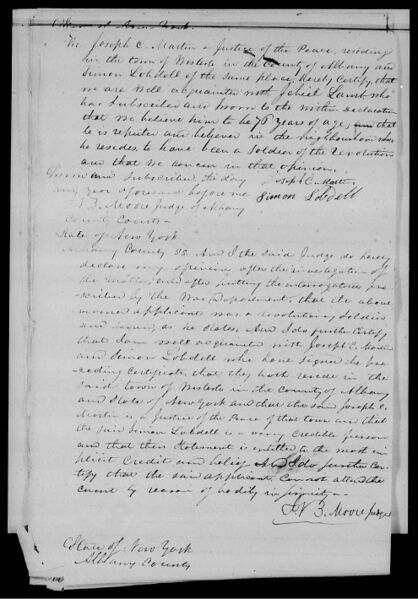 We Joseph C. Martin a Justice of the Peace, residing
in the town of Westerlo in the County of Albany and
Simon Lobdell of the same place, Hereby Certify, that
we are well acquainted with Jehiel Lamb who
has Subscribed and sworn to the within declaration
that we believe him to be 76 years of age, and that
he is reputed and believed in the neighbourhood where
he resides to have been a Soldier of the revolution
and that we concur in that opinion.
Sworn and Subscribed, the day Joseph C. Martin
and year aforesaid before me Simon Lobdell
N. B. Moore judge of Albany
County Courts
State of New York
Albany County SS. And I the said Judge do hereby
declare my opinion, after the investigation of
the matter, and after putting the interrogatories pre
scribed by the War Department, that the above
named applicant was a revolutionary Soldier
and served, as he States. And I do further Certify
that I am well acquainted with Joseph C. Martin
and Simon Lobdell who have signed the pre
ceeding Certificate, that they both reside in the
said town of Westerlo in the County of Albany
and State of New York and that the said Joseph C.
Martin is a Justice of the Peace of that town and that
the said Simon Lobdell is a very credible person
and that their Statement is entitled to the most im
plicit Credit and belief And I do further Cer
tify that the said applicant Can not attend the
Court by reason of bodily infirmity
N. B. Moore judge
State of New York
Albany County